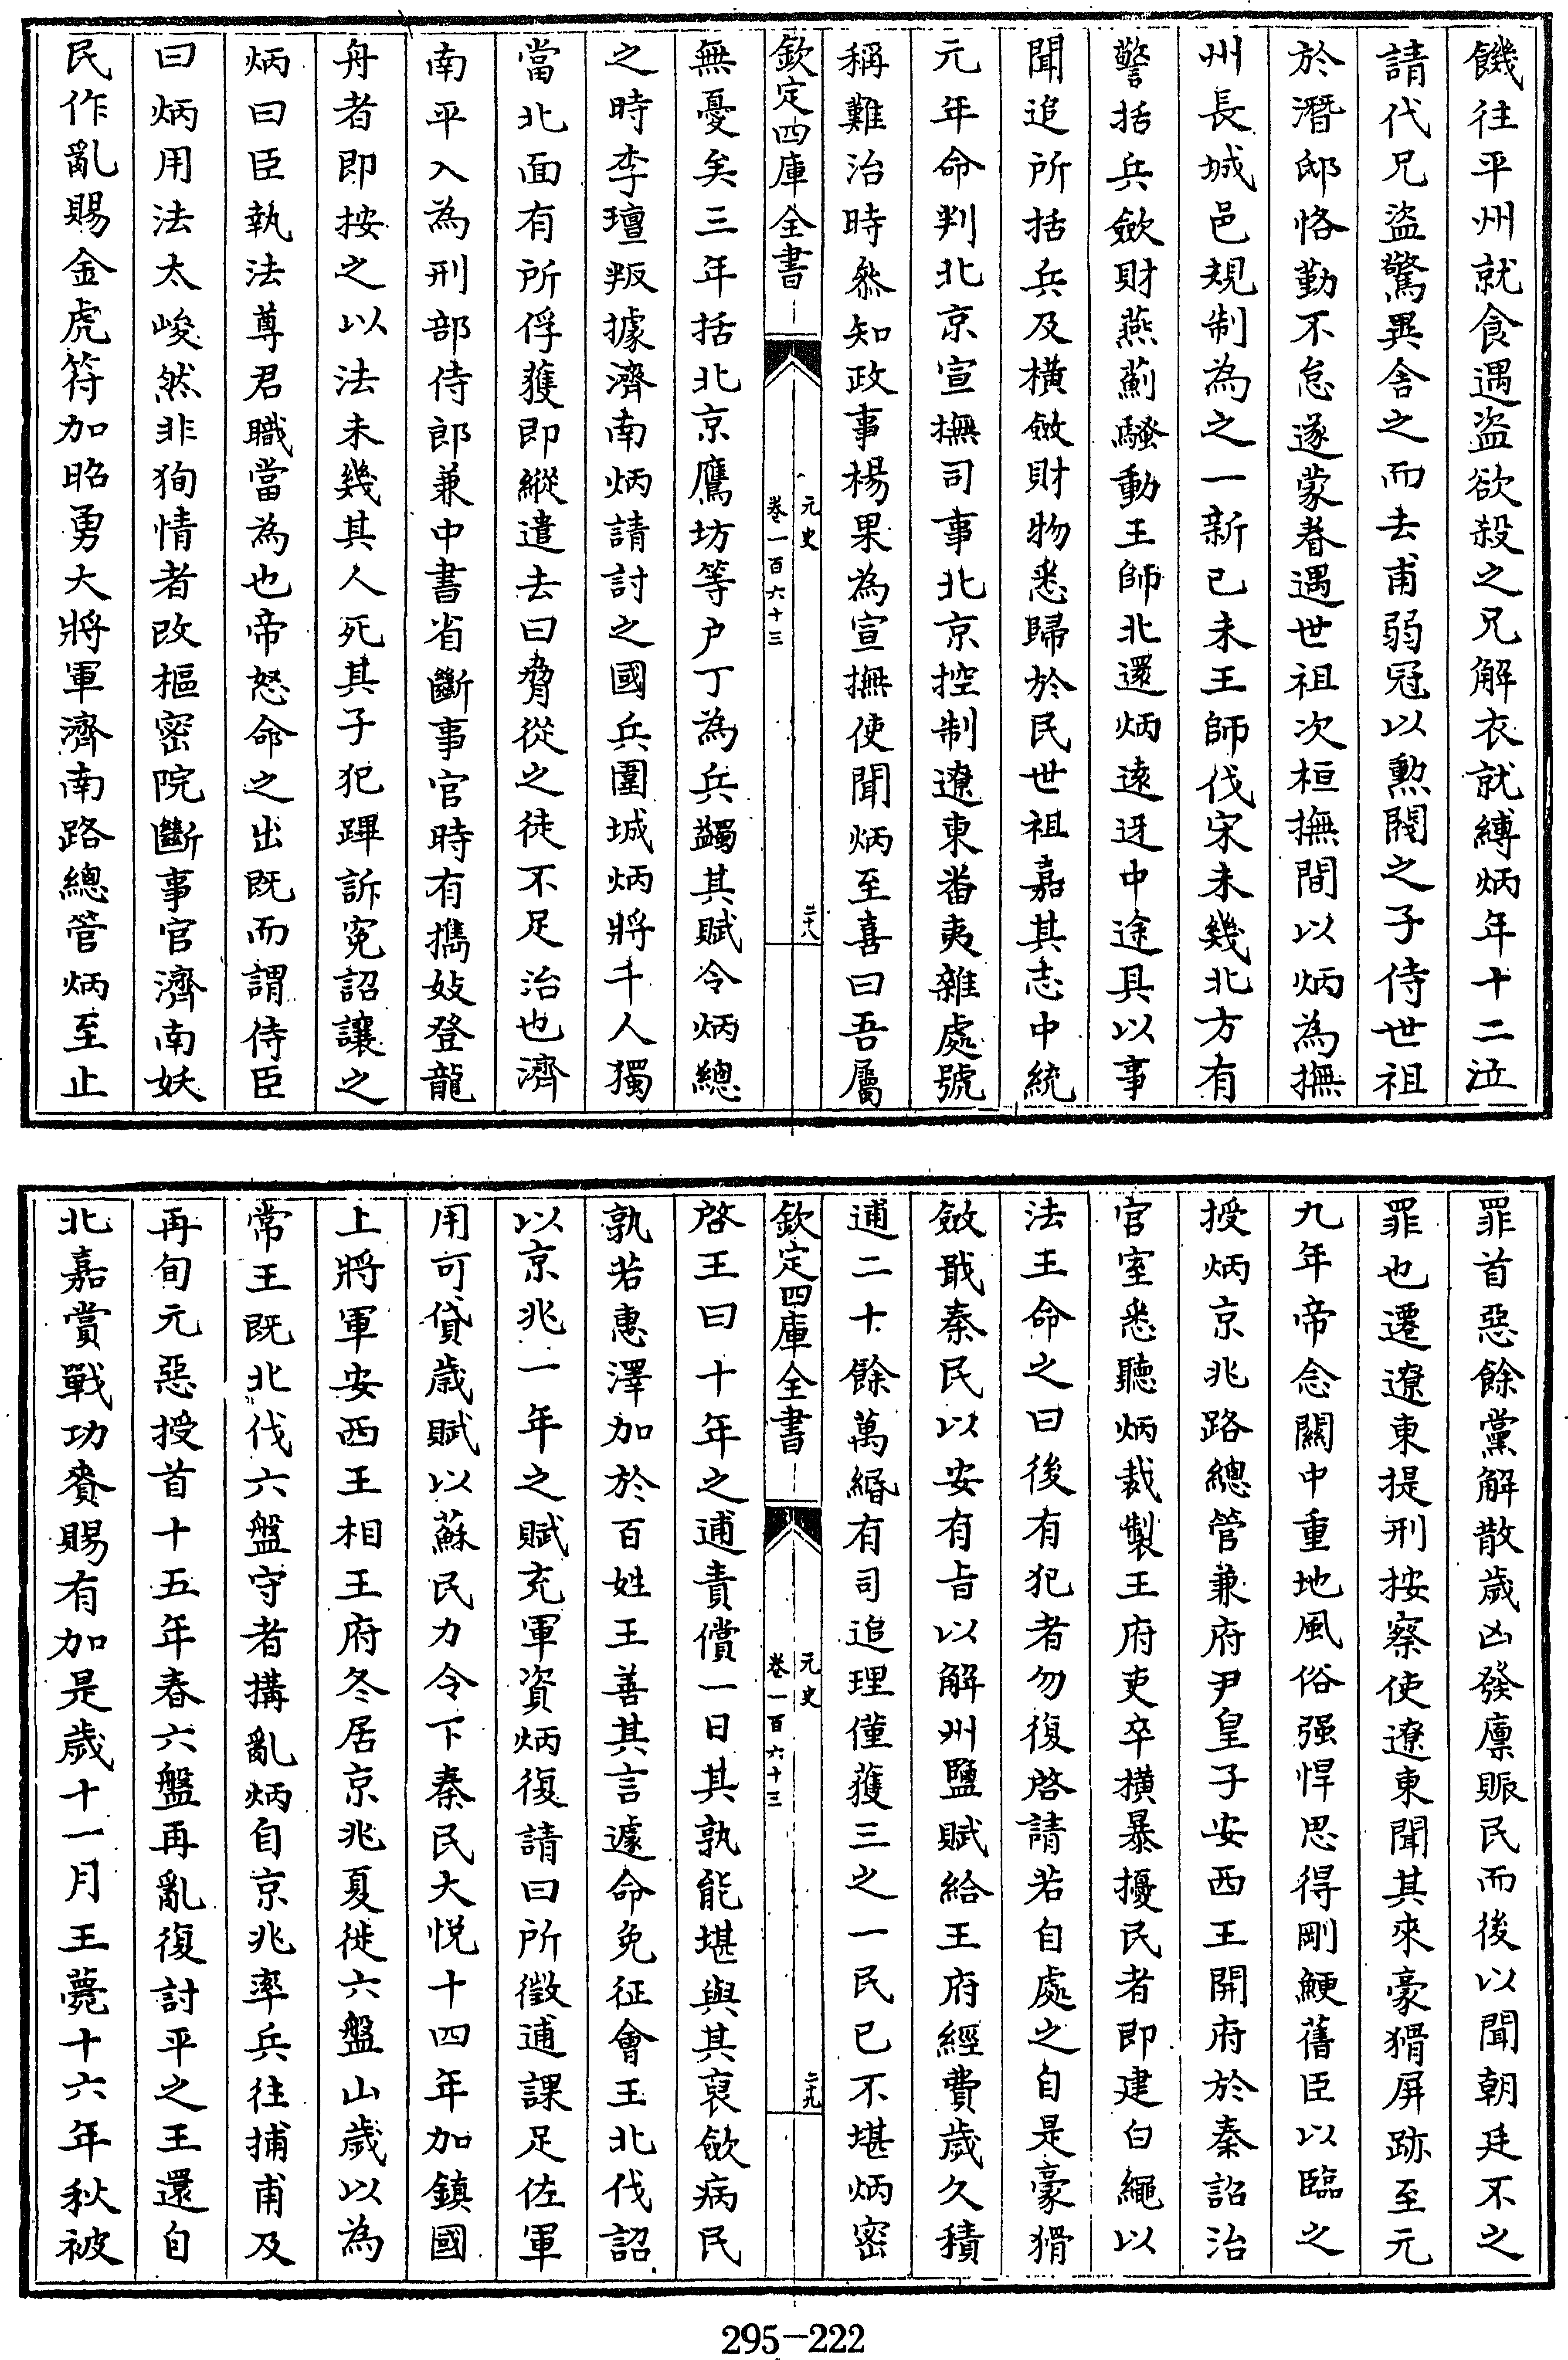 饑往平州就食遇盜欲殺之兄解衣就縛炳年十二泣
請代兄盜驚異舍之而去甫弱冠以勲閥之子侍世祖
於潛邸恪勤不怠遂蒙眷遇世祖次桓撫間以炳為撫
州長城邑規制為之一新已未王師伐宋未幾北方有
警括兵斂財燕薊騷動王師北還炳逺迓中途具以事
聞追所括兵及橫斂財物悉歸於民世祖嘉其志中統
元年命判北京宣撫司事北京控制遼東畨夷雜處號
稱難治時叅知政事楊果為宣撫使聞炳至喜曰吾屬
欽定四庫全書
元史
卷一百六十三
二十八
無憂矣三年括北京鷹坊等户丁為兵蠲其賦令炳總
之時李璮叛據濟南炳請討之國兵圍城炳將千人獨
當北面有所俘獲即縱遣去曰脅從之徒不足治也濟
南平入為刑部侍郎兼中書省斷事官時有攜妓登龍
舟者即按之以法未幾其人死其子犯蹕訴寃詔讓之
炳曰臣執法尊君職當為也帝怒命之出既而謂侍臣
曰炳用法太峻然非狥情者改樞密院斷事官濟南妖
民作亂賜金虎符加昭勇大將軍濟南路總管炳至止
罪首惡餘黨解散歲凶發廪賑民而後以聞朝廷不之
罪也遷遼東提刑按察使遼東聞其來豪猾屏跡至元
九年帝念關中重地風俗强悍思得剛鯁舊臣以臨之
授炳京兆路總管兼府尹皇子安西王開府於秦詔治
官室悉聽炳裁製王府吏卒横暴擾民者即建白繩以
法王命之曰後有犯者勿復啓請若自處之自是豪猾
斂戢秦民以安有旨以解州鹽賦給王府經費歲久積
逋二十餘萬緡有司追理僅獲三之一民已不堪炳密
欽定四庫全書
元史
卷一百六十三
二十九
啓王曰十年之逋責償一日其孰能堪與其裒斂病民
孰若惠澤加於百姓王善其言遽命免征會王北伐詔
以京兆一年之賦充軍資炳復請曰所徵逋課足佐軍
用可貸歲賦以蘇民力令下秦民大悦十四年加鎮國
上將軍安西王相王府冬居京兆夏徙六盤山歲以為
常王既北伐六盤守者搆亂炳自京兆率兵往捕甫及
再旬元惡授首十五年春六盤再亂復討平之王還自
北嘉賞戰功賚賜有加是歲十一月王薨十六年秋被
295-222